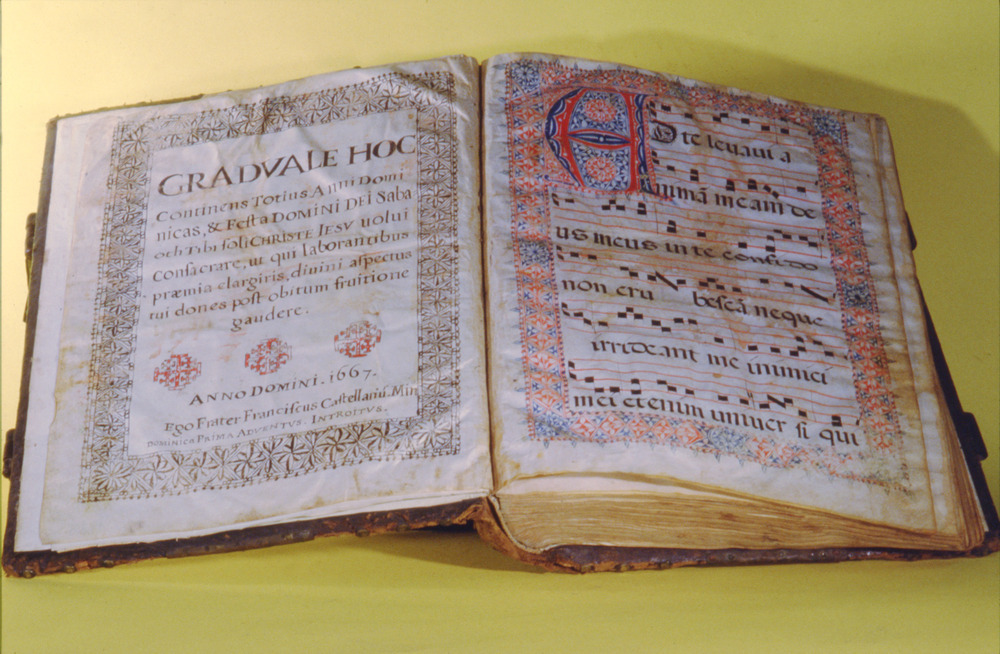 GRADVALE HOC
Continens Totius Anni Domi
nicas, & Festa DOMINI DEI Saba
oth Tibi soli CHRISTE IESV uolui
Consacrare, ut qui laborantibus
præmia elargiris, diuini aspectus
tui dones post obitum fruitione
gaudere.
ANNO DOMINI. 1667.
Ego Frater Franciscus Castellarii. Min
DOMINICA PRIMA ADVENTVS. INTROITVS.
AD te leuaui a
nimã meam de
us meus in te confido
non eru bescã neque
irrideant me inimici
mei etenim uniuer si qui